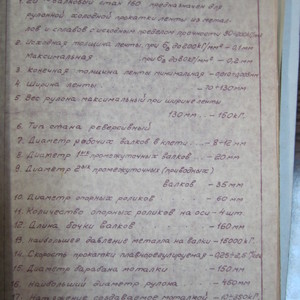 1. 20-валковый стан 160 предназначен для
рулонной холодной прокатки ленты из метал-
лов и сплавов с исходным пределом прочности
2. Исходная толщина ленты при
максимальная при – 0.2 мм
3. Конечная толщина ленты минимальная
4. Ширина ленты – 70÷130 мм
5. Вес рулона максимальный при ширине ленты
130 мм – 150 кГ.
6. Тип стана реверсивный
7. Диаметр рабочих валков в клети – 8÷12 мм
8. Диаметр 1ых промежуточных валков – 20 мм
9. Диаметр 2ых промежуточных (приводных)
валков – 35 мм
10. Диаметр опорных роликов – 60 мм
11. Количество опорных роликов на оси – 4 шт.
12. Длина бочки валков – 160 мм
13. Наибольшее давление металла на валки – 15000 кГ.
14. Скорость прокатки плавнорегулируемая
15. Диаметр барабана моталки – 150 мм
16. Наибольший диаметр рулона – 450 мм
17. Натяжение создаваемое моталкой